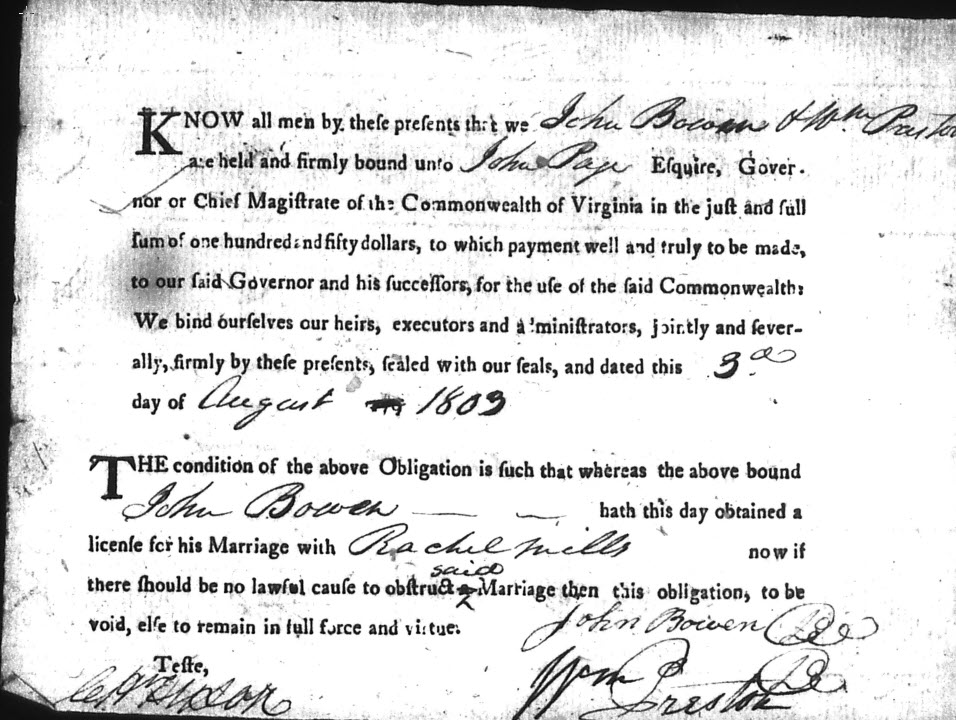 KNOW all men by theſe preſents that we John Bowen & Wm Preston
are held and firmly bound unto John Page Eſquire, Gover-
nor or Chief Magiſtrate of the Commonwealth of Virginia in the juſt and full
ſum of one hundred and fifty dollars, to which payment well and truly to be made,
to our ſaid Governor and his ſucceſſors, for the uſe of the ſaid Commonwealth:
We bind ourſelves our heirs, executors and adminiſtrators, jointly and ſever-
ally, firmly by theſe preſents, ſealed with our ſeals, and dated this 3d
day of August 1803
THE condition of the above Obligation is ſuch that whereas the above bound
John Bowen — — hath this day obtained a
licenſe for his Marriage with Rachel Mills now if
said
there ſhould be no lawful cauſe to obſtruct Marriage then this obligation, to be
void, elſe to remain in full force and virtue.
John Bowen
Teſte,
Wm Preston